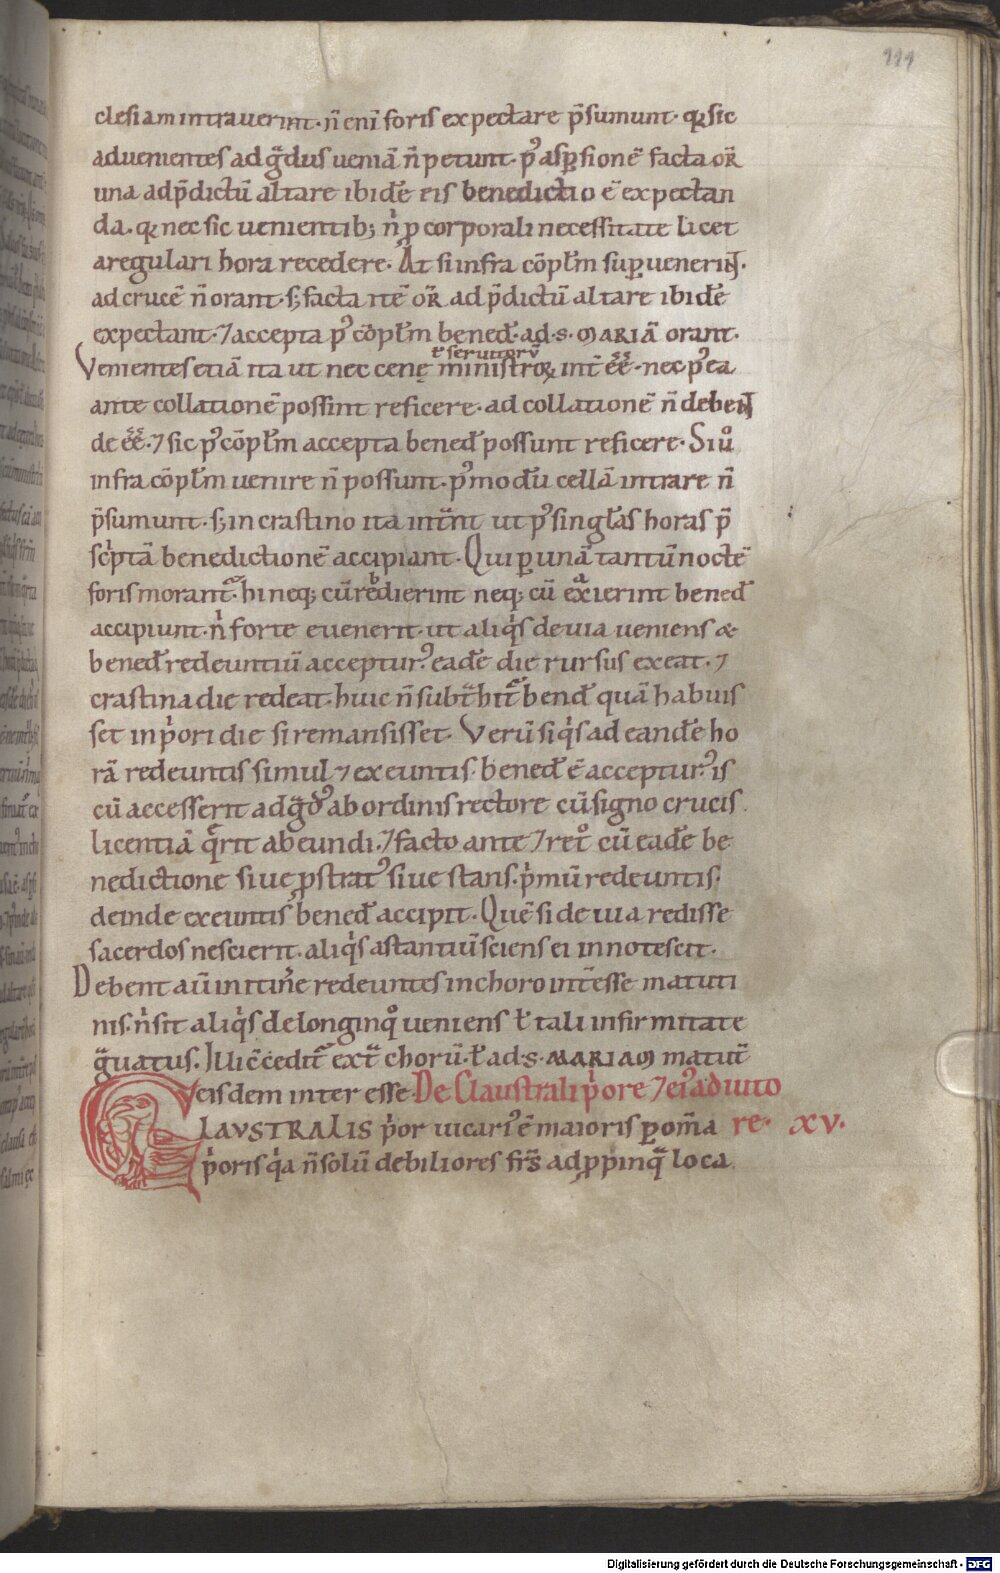 111
clesiam intrauerint· n̄ eni̅ foris expectare p̄sumunt· qꝛ sic
aduenientes ad g̃dus uenia̅ n̄ petunt· pꝰ asꝑsione̅ facta or̃
una ad p̄dictu̅ altare ibide̅ eis benedictio e̅ expectan
da· qꝛ nec sic uenientibꝫ n̍ p corporali necessitate licet
a regulari hora recedere· At si infra co̅pl̅m suꝑuenerint·
ad cruce̅ n̄ orant· sꝫ facta ite̅ or̃ ad p̄dictu̅ altare ibide̅
expectant· ⁊ accepta pꝰ co̅pl̅m bened̅· ad· s· MARIA̅ orant·
ł seruitorū
Venientes etia̅ ita ut nec cenę ministroꝝ int̅ee̅· nec pꝰea
ante collatione̅ possint reficere· ad collatione̅ n̄ debent
de ee̅· ⁊ sic pꝰ co̅pl̅m accepta bened̅ possunt reficere· Siu̅o
infra co̅pl̅m uenire n̄ possunt· pꝰmodu̅ cella̅ intrare n̄
p̄sumunt· sꝫ in crastino ita int̅nt ut pꝰ singl̅as horas p̄
sc̍pta̅ benedictione̅ accipiant· Qui ꝑ una̅ tantu̅ nocte̅
foris morant᷑· hi neqꝫ cu̅ redierint neqꝫ cu̅ exierint bened̅
accipiunt· n̍ forte euenerit· ut aliq̍s de uia ueniens &
bened̅ redeuntiu̅ acceptur᷒· eade̅ die rursus exeat· ⁊
crastina die redeat· huic n̄ subt̃hit᷑ bend̅ qua̅ habuis
set in p̍ori die si remansisset· Veru̅ siq̍s ad eande̅ ho
ra̅ redeuntis simul ⁊ exeuntis· bened̅ e̅ acceptur᷒· is
cu̅ accesserit ad g̃dꝰ ab ordinis rectore cu̅ signo crucis
licentia̅ q̃rit abeundi· ⁊ facto ante ⁊ ret͛o cu̅ eade̅ be
nedictione siue ꝓstratꝰ siue stans· p̍mu̅ redeuntis·
deinde exeuntis bened̅ accipit· Que̅ si de uia redisse
sacerdos nescierit· aliq̍s astantiu̅ sciens ei innotescit·
Debent au̅ in itin̅e redeuntes in choro int̅esse matuti
nis· n̍ sit aliq̍s de longinqͦ ueniens ł tali infirmitate
g̃uatus· Illi c̅cedit᷑ ext̃ choru̅· ł ad· s· MARIAM matut̅
eisdem inter esse De Claustrali p̍ore ⁊ eiꝰ adiuto
CLAVSTRALIS p̍or uicariꝰ e̅ maioris ꝑ om̅a re· xv·
p̍oris q̍a n̄ solu̅ debiliores fr̅s ad ꝓpinq̃ loca
Digitalisierung gefördert durch die Deutsche Forschungsgemeinschaft · DFG